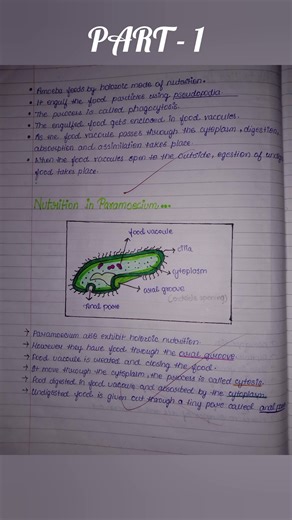 PART - 1
• Amoeba feeds by holozoic mode of nutrition.
• It engulf the food particles using pseudopodia
• The process is called phagocytosis.
• The engulfed food gets enclosed in food vacuoles.
• As the food vacuole passes through the cytoplasm, digestion,
absorption and assimilation takes place.
• When the food vacuoles open to the outside, egestion of
food takes place.
Nutrition in Paramoecium...
food vacuole
cilia
cytoplasm
oral groove
anal pore
→ Paramoecium also exhibit holozoic nutrition.
→ However they have food through the oral groove
→ Food vacuole is created and closing the food.
→ It move through the cytoplasm, the process is called cytosis.
→ Food digested in food vacuous and absorbed by the cytoplasm
→ Undigested food is given out through a tiny pore called anal pore